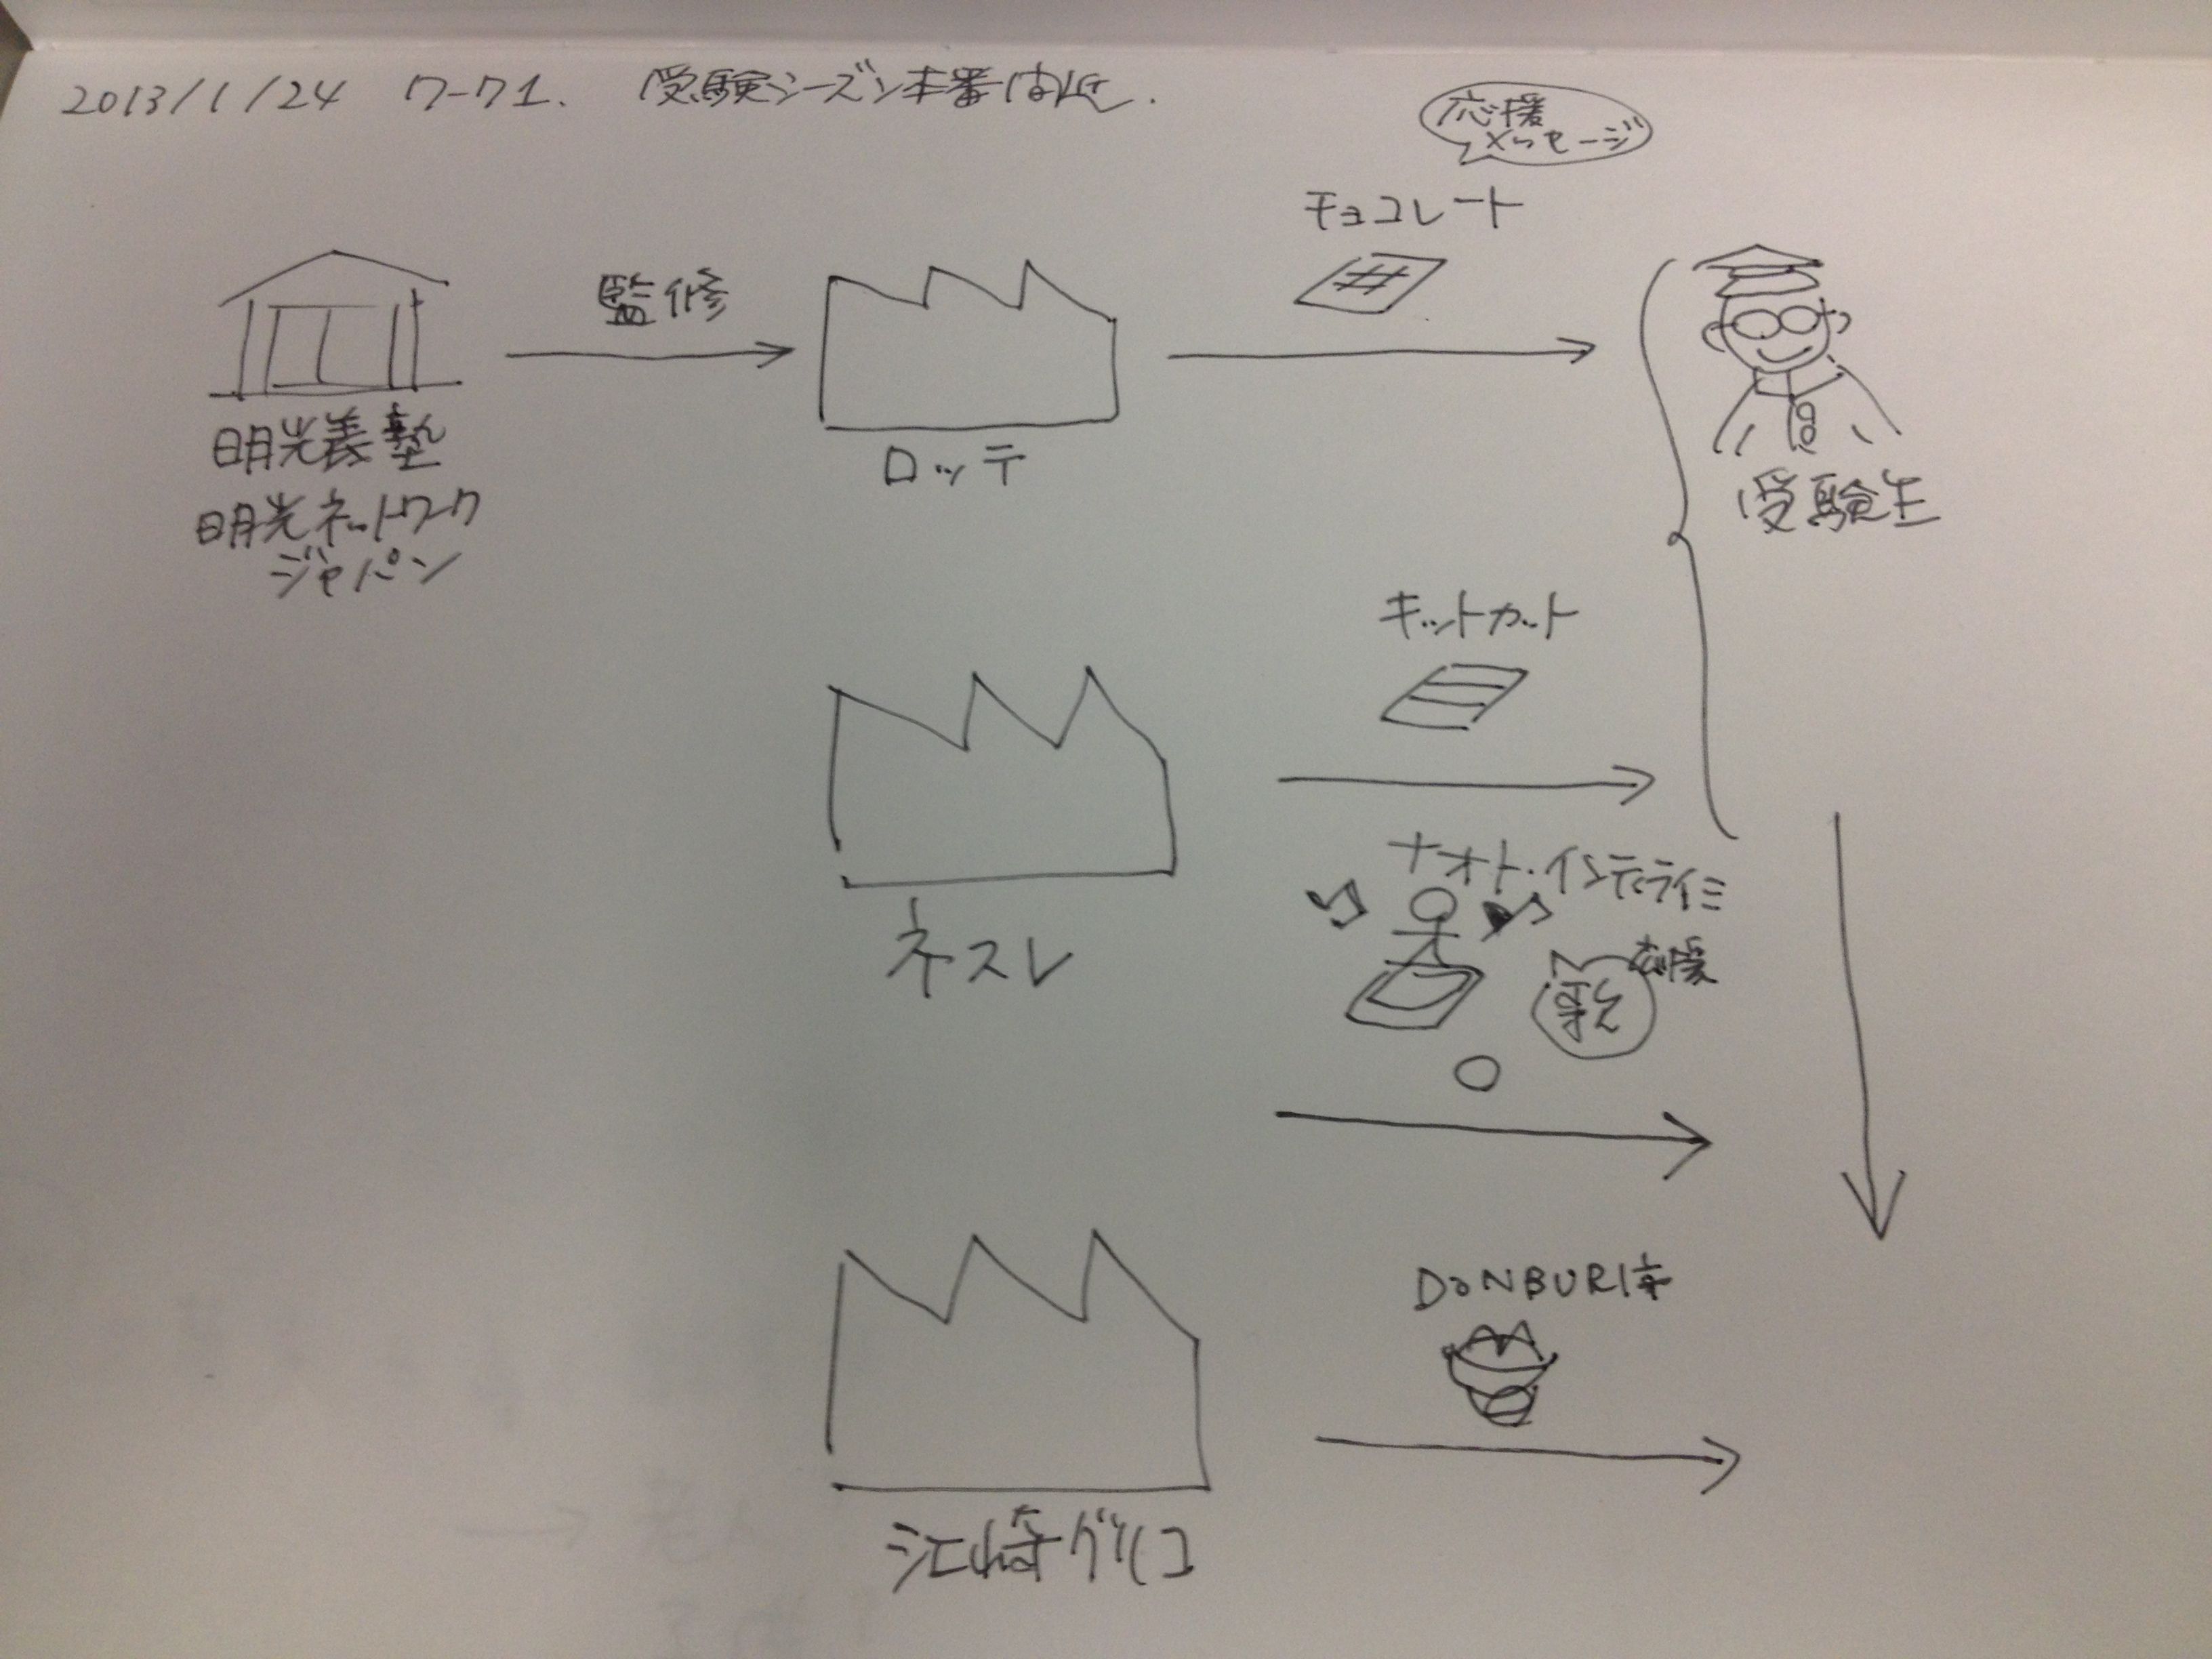 2013/1/24 ワーク1. 受験シーズン本番間近.
応援
メッセージ
チョコレート
監修
明光義塾
明光ネットワーク
ジャパン
ロッテ
受験生
キットカット
ネスレ
ナオト・インティライミ
応援
歌
DONBURI亭
江崎グリコ